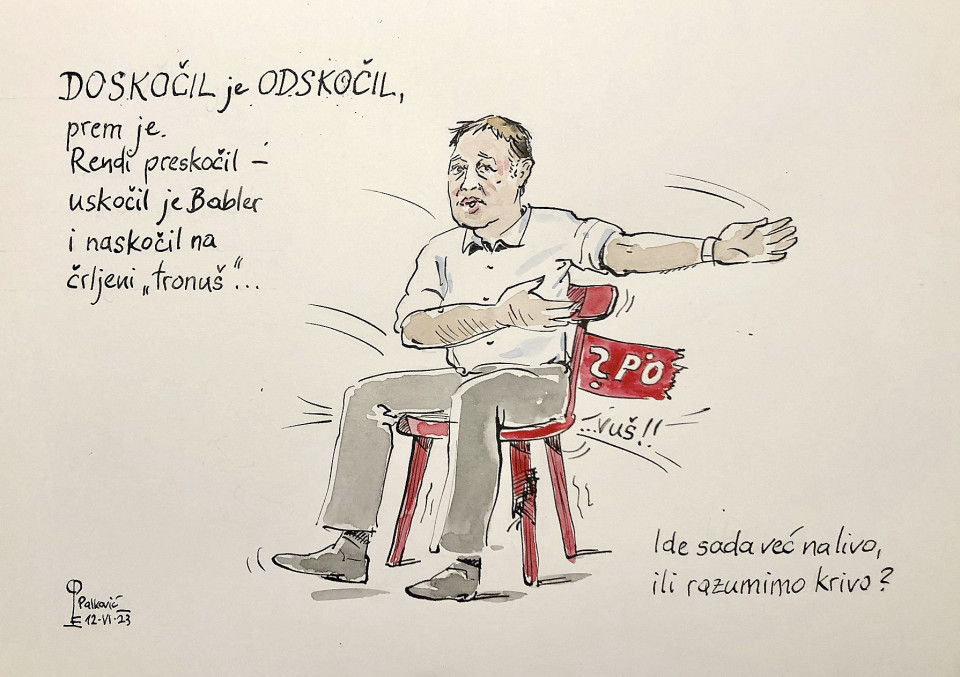 DOSKOČIL je ODSKOČIL,
prem je.
Rendi preskočil –
uskočil je Babler
i naskočil na
črljeni „tronuš“...
?PÖ
...vuš!!
Ide sada već na livo,
ili razumimo krivo?
Palković
12-VI-23